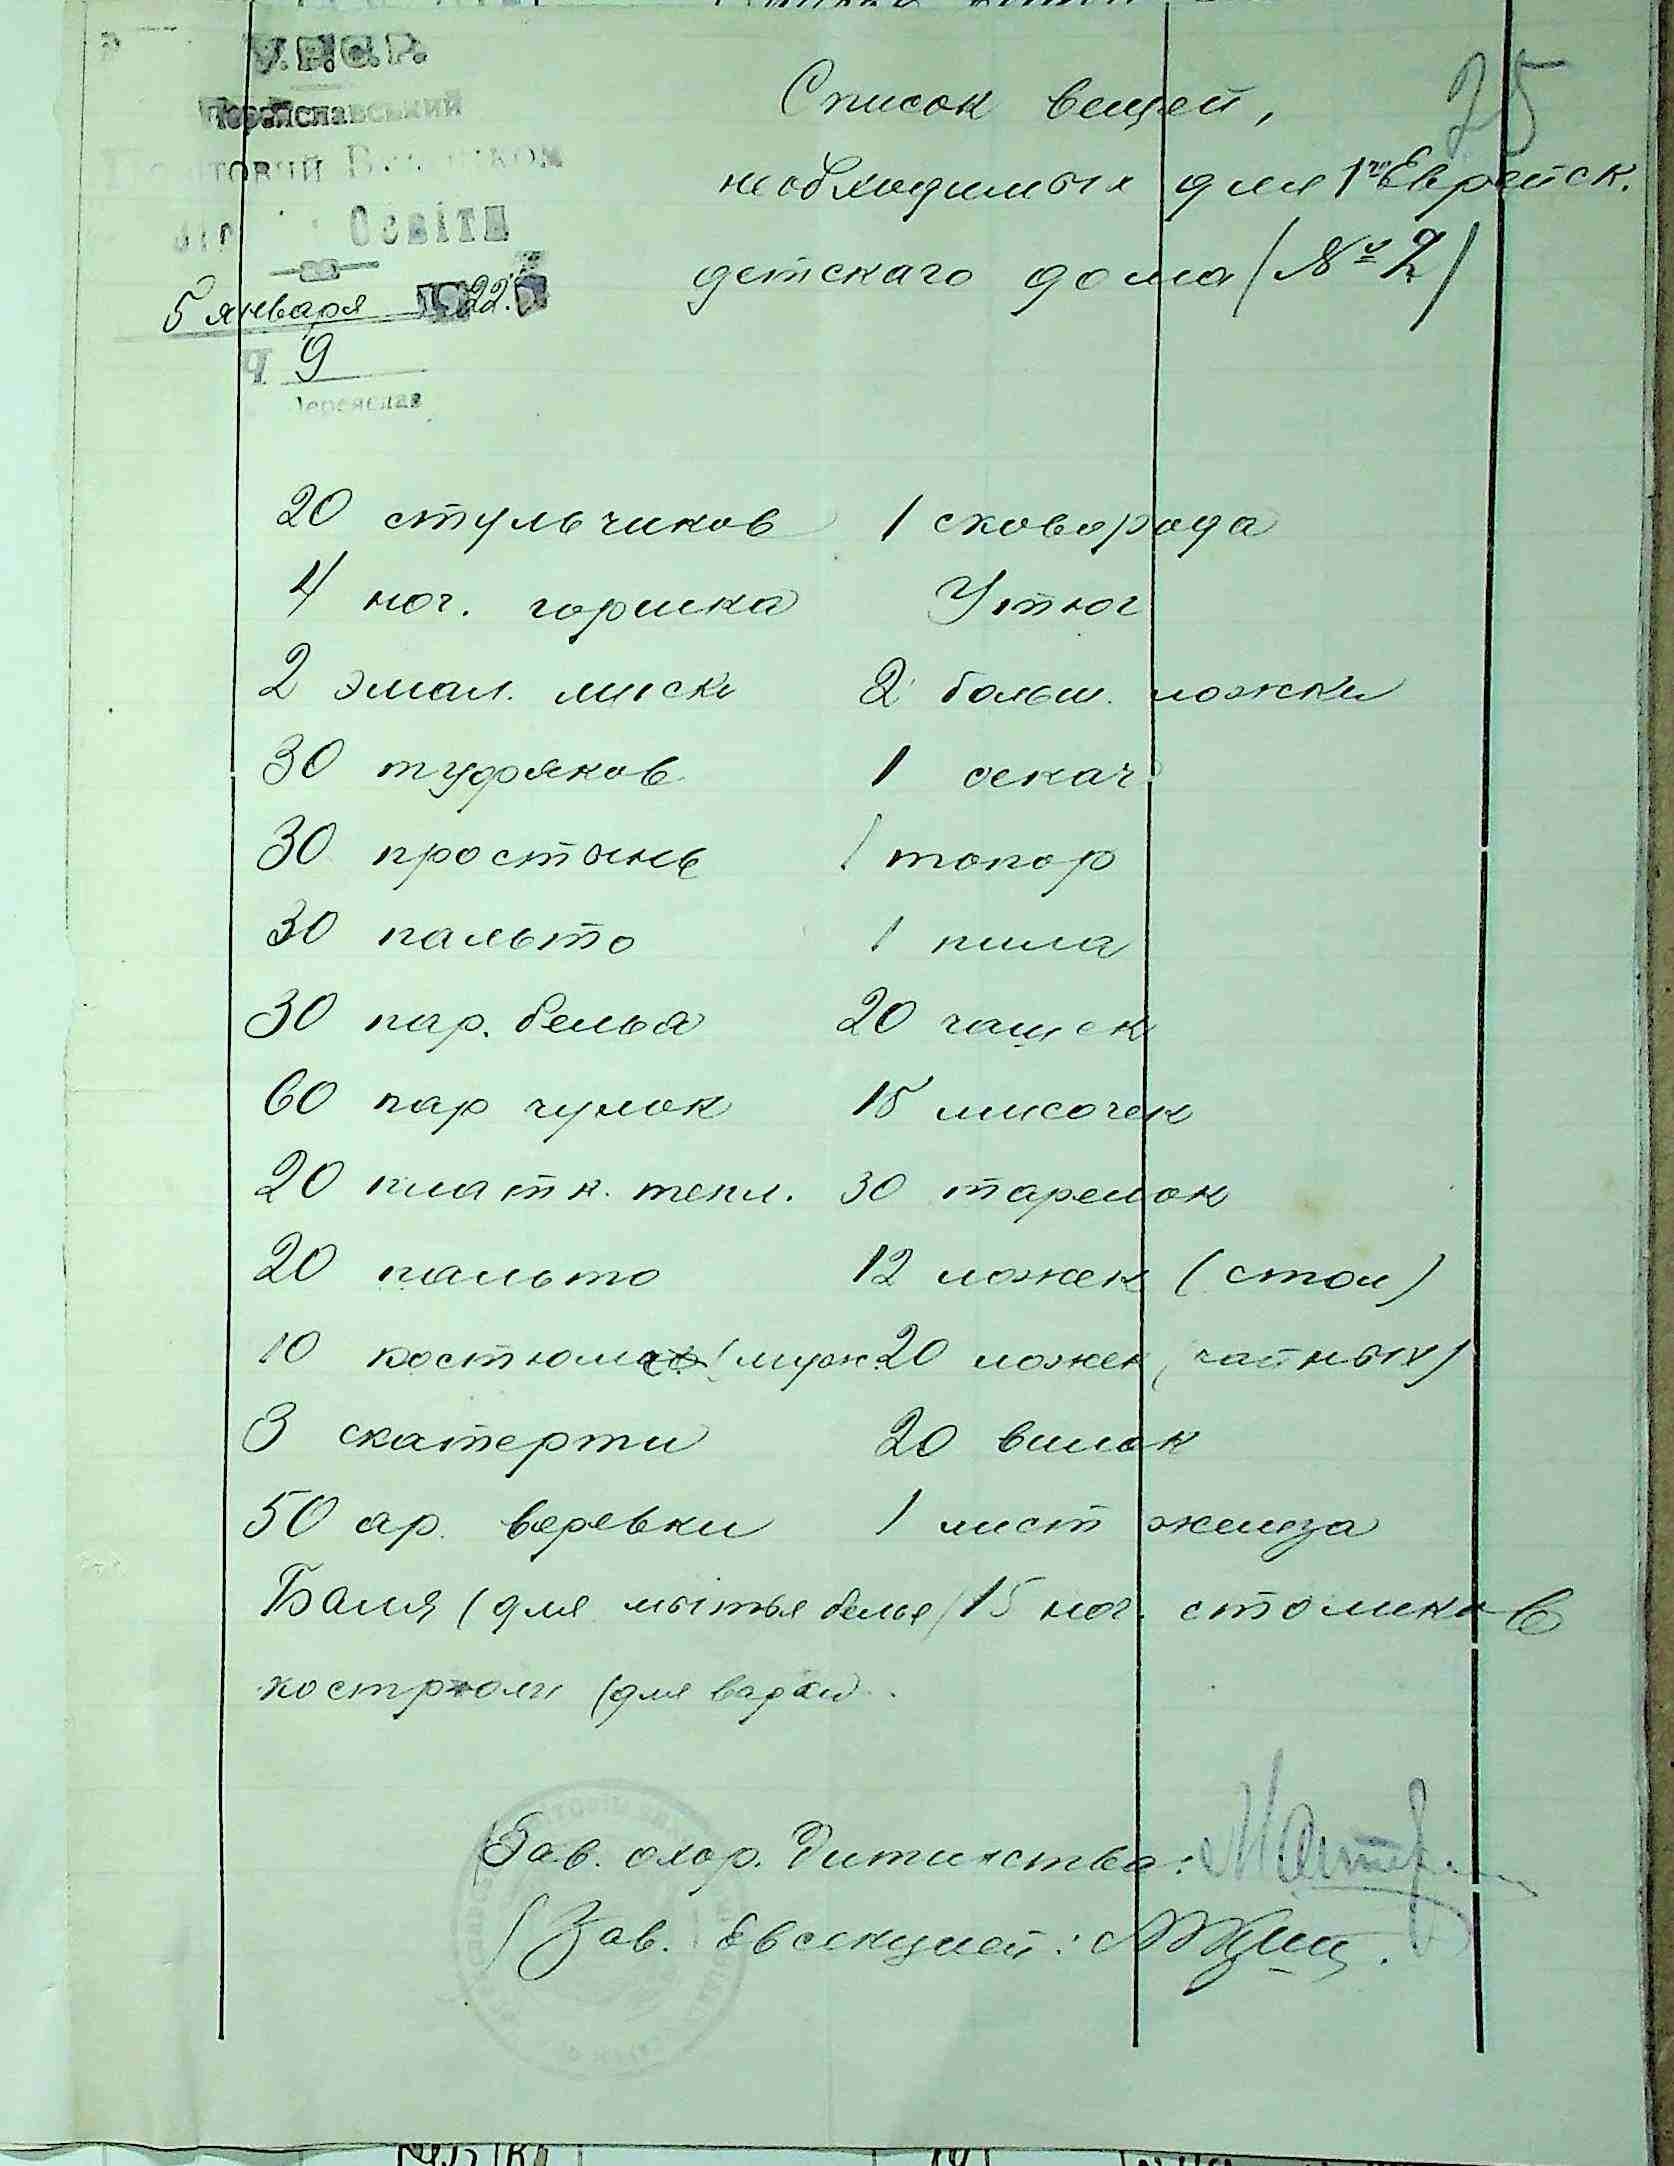 У.Р.С.Р.
Переяславський
Освіти
5 января 1922
Ч 9
Переяслав
25
Список вещей,
необходимых для 1го Еврейск.
детскаго дома (№ 2)
20 стульчиков 1 сковорода
4 ноч. горшка Утюг
2 эмал. миски 2 больш. ложки
30 туфяков 1 секач
30 простынь 1 топор
30 пальто 1 пила
30 пар. белья 20 чашек
60 пар чулок 15 мисочек
20 платк. тепл. 30 тарелок
20 пальто 12 ложек (стол)
10 костюмов (мужж. 20 ложек (чайных)
3 скатерти 20 вилок
50 ар. веревки 1 лист железа
Балия (для мытья белья) 15 ноч. столиков
кострюли (для варки)
Зав. охор. Дитинства:
Зав. Евсекцией: